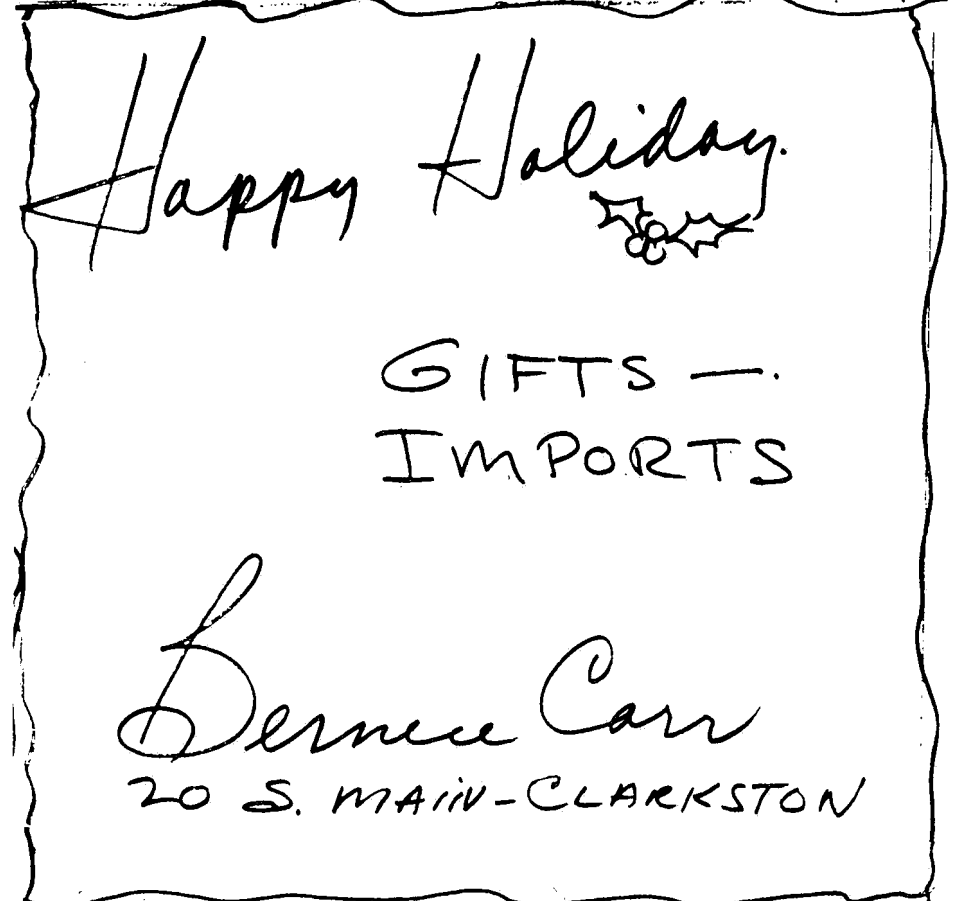 Happy Holiday.
GIFTS —.
IMPORTS
Bernece Carr
20 S. MAIN - CLARKSTON